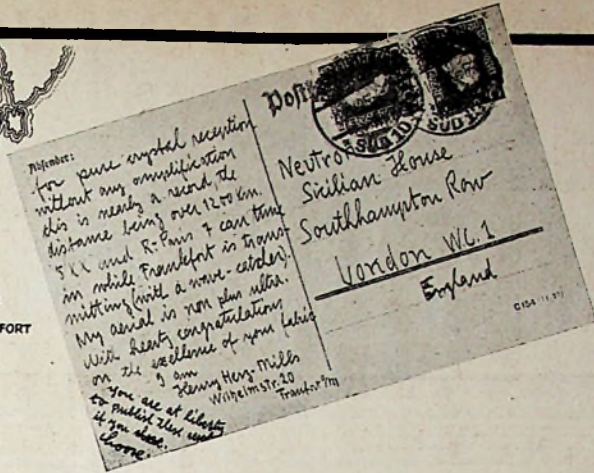 FORT
Absender:
for pure crystal reception
without any amplification
this is nearly a record, the
distance being over 1200 km.
5XX and R-Paris I can tune
in while Frankfort is trans-
mitting (with a wave-catcher).
My aerial is non plus ultra.
With hearty congratulations
on the excellence of your fabric
I am
Henry Herz-Mills
Wilhelmstr. 20
Frankfrt a/M
You are at liberty
to publish these
if you
choose.
SÜD 10
SÜD 10
Neutron
Sicilian House
Southhampton Row
London W.C.1
England
C154